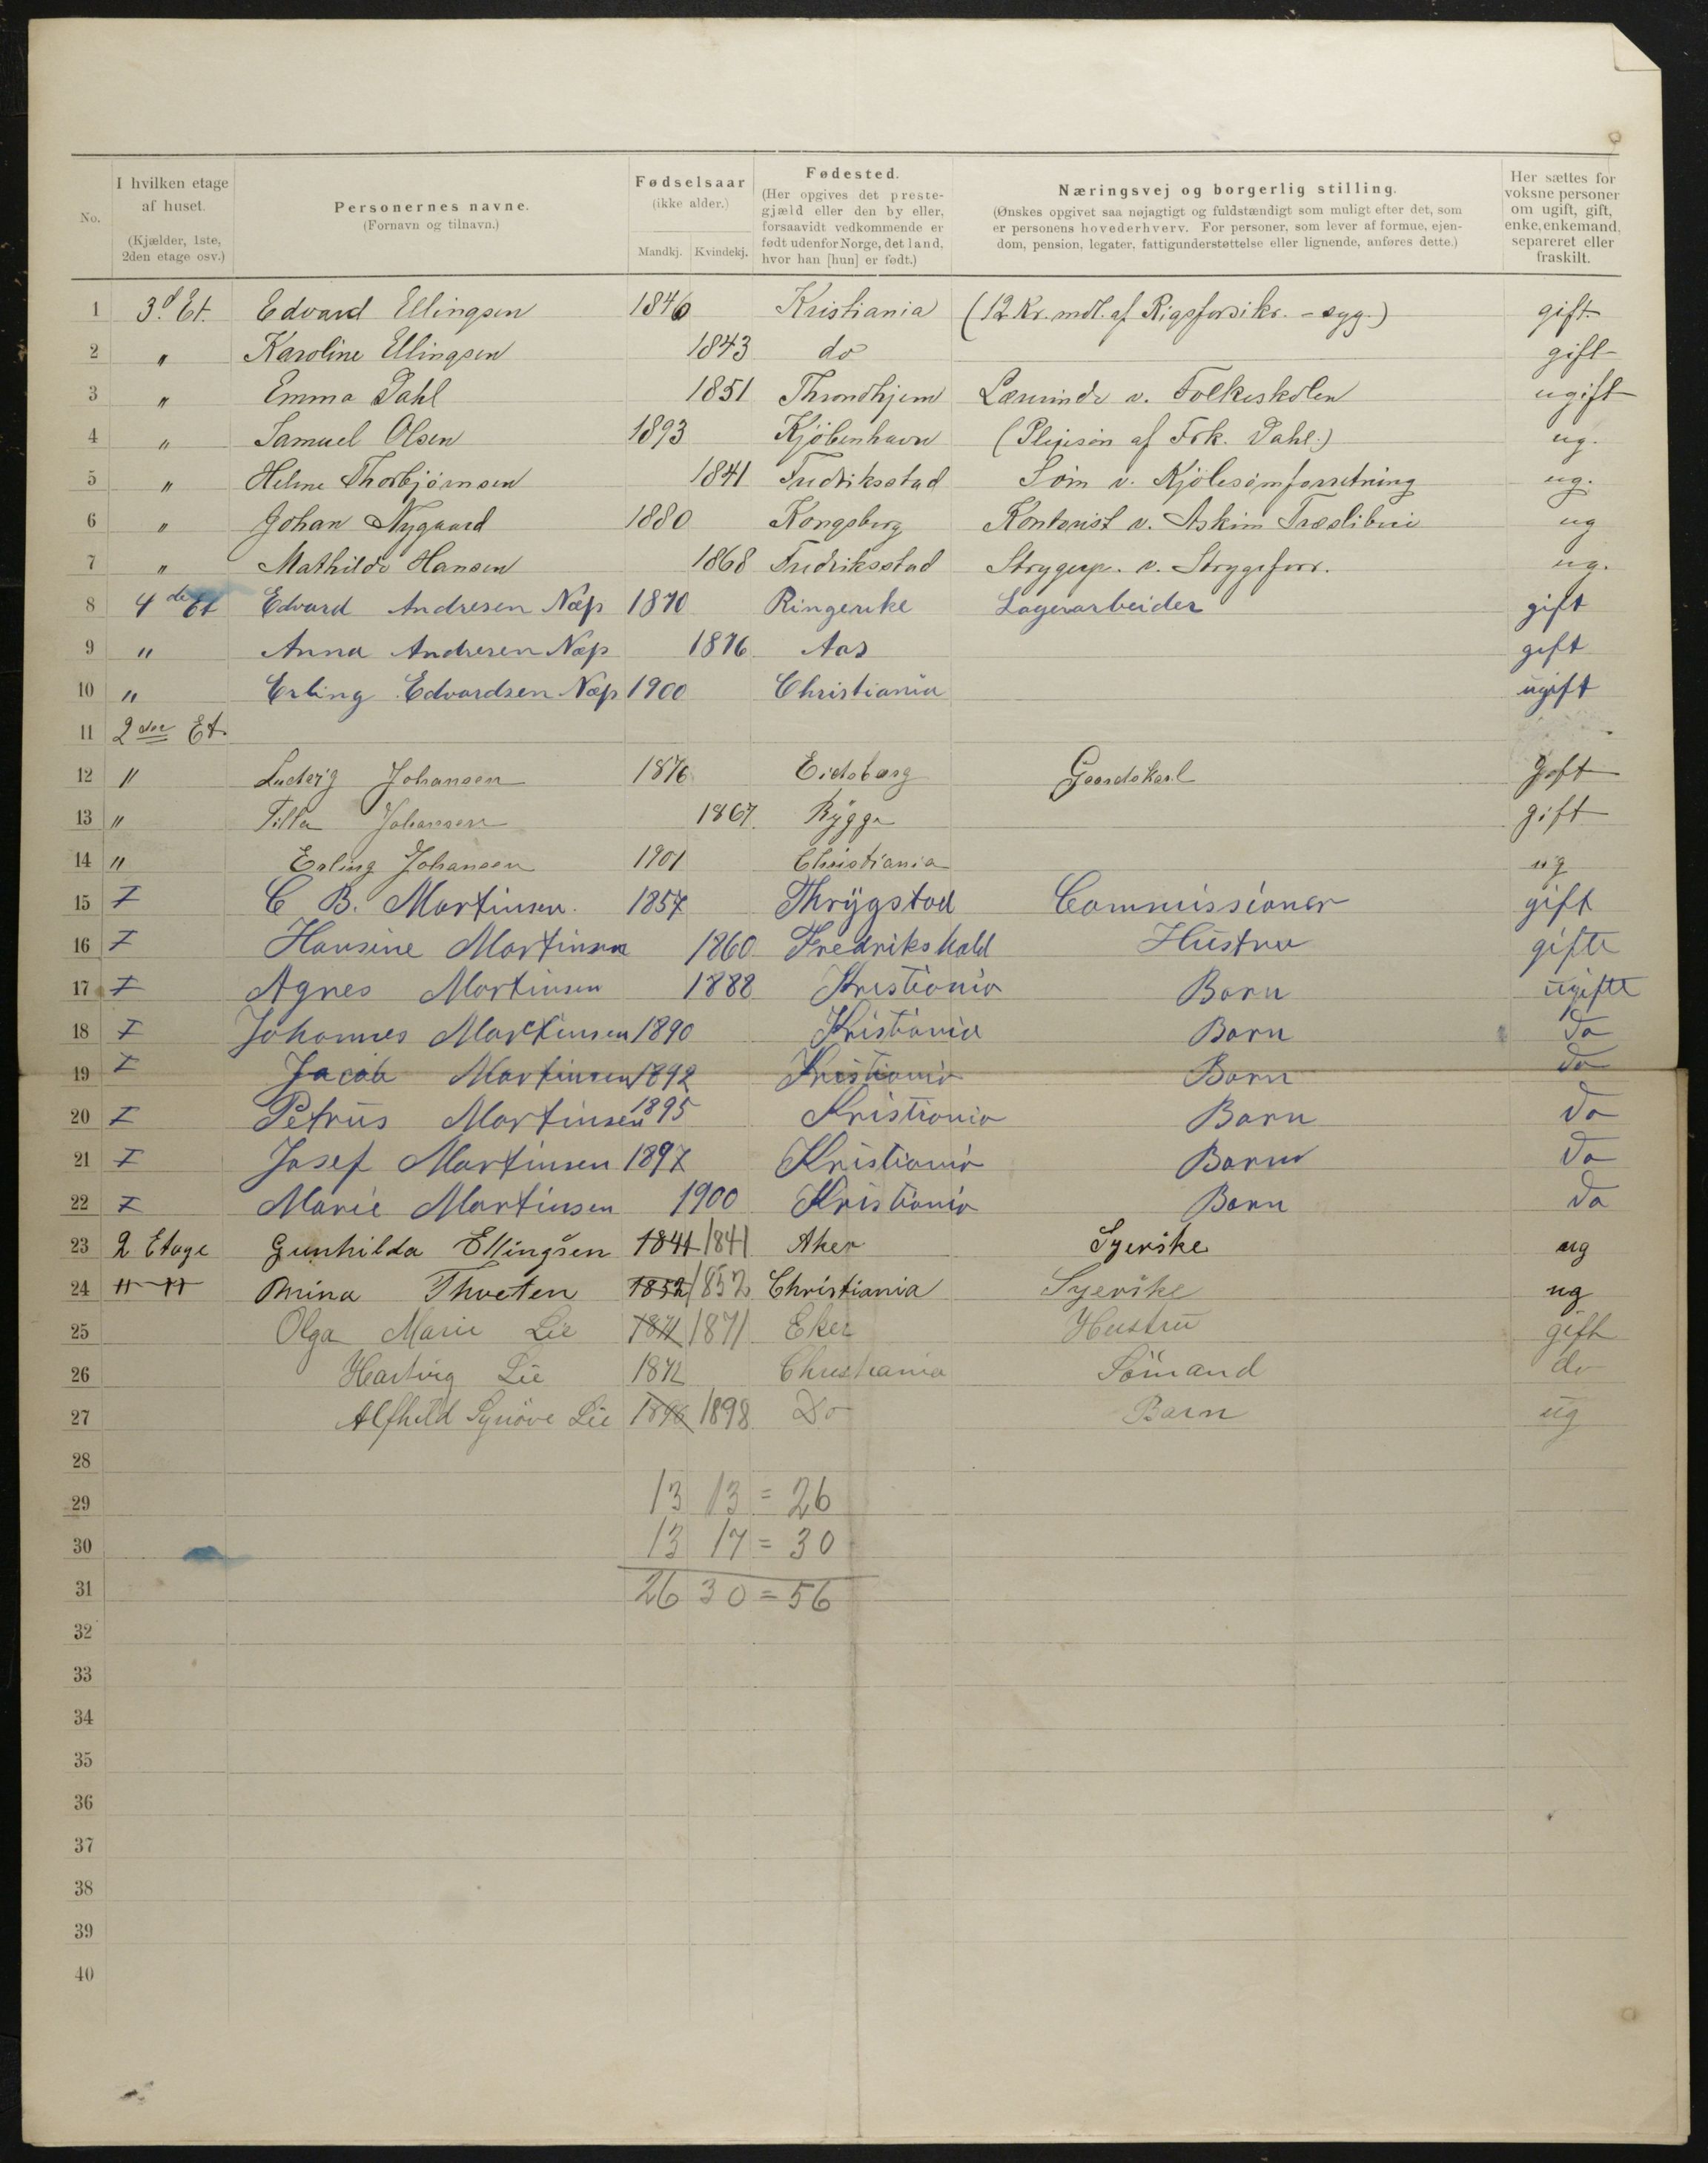 No.
I hvilken etage af huset. (Kjælder, 1ste, 2den etage osv.)
Personernes navne. (Fornavn og tilnavn.)
Fødselsaar (ikke alder.) Mandkj. Kvindekj.
Fødested. (Her opgives det prestegjæld eller den by eller, forsaavidt vedkommende er født udenfor Norge, det land, hvor han [hun] er født.)
Næringsvej og borgerlig stilling. (Ønskes opgivet saa nøjagtigt og fuldstændigt som muligt efter det, som er personens hovederhverv. For personer, som lever af formue, ejendom, pension, legater, fattigunderstøttelse eller lignende, anføres dette.)
Her sættes for voksne personer om ugift, gift, enke, enkemand, separeret eller fraskilt.
1 3d. Et. Edvard Ellingsen 1846 Kristiania (12 Kr. mdl. af Rigsforsikr. - syg.) gift
2 " Karoline Ellingsen 1843 do gift
3 " Emma Dahl 1851 Throndhjem Lærerinde v. Folkeskolen ugift
4 " Samuel Olsen 1893 Kjöbenhavn (Plejesøn af Frk. Dahl.) ug.
5 " Helene Thorbjørnsen 1841 Fredriksstad Søm v. Kjolesømforretning ug.
6 " Johan Nygaard 1880 Kongsberg Kontorist v. Askim Træsliberi ug
7 " Mathilde Hansen 1868 Fredriksstad Strygerp. v. Strygeforr. ug.
8 4de Et Edvard Andresen Næp 1870 Ringerike Lagerarbeider gift
9 " Anna Andresen Næp 1876 Aas gift
10 " Erling Edvardsen Næp 1900 Christiania ugift
11 2den Et.
12 " Ludvig Johansen 1876 Eidsberg Gaardskarl Gift
13 " Tilla Johansen 1867. Rygge gift
14 " Erling Johansen 1901 Christiania ug
15 I C B. Martinsen. 1857 Thrygstad Commissionær gift
16 I Hansine Martinsen 1860 Fredrikshald Hustru gifte
17 I Agnes Martinsen 1888 Kristiania Barn ugifte
18 I Johannes Martinsen 1890 Kristiania Barn do
19 I Jacob Martinsen 1892 Kristiania Barn do
20 I Petrus Martinsen 1895 Kristiania Barn do
21 I Josef Martinsen 1897 Kristiania Barn do
22 I Marie Martinsen 1900 Kristiania Barn do
23 2 Etage Gunhilda Ellingsen 1841 1841 Aker Syerske ug
24 " " Mina Thveten 1852 1852 Christiania Syerske ug
25 Olga Marie Lie 1871 1871 Eker Hustru gift
26 Hartvig Lie 1872 Christiania Sömand do
27 Alfhild Synöve Lie 1898 Do Barn ug
28
29 13 13 = 26
30 13 17 = 30
31 26 30 = 56
32
33
34
35
36
37
38
39
40